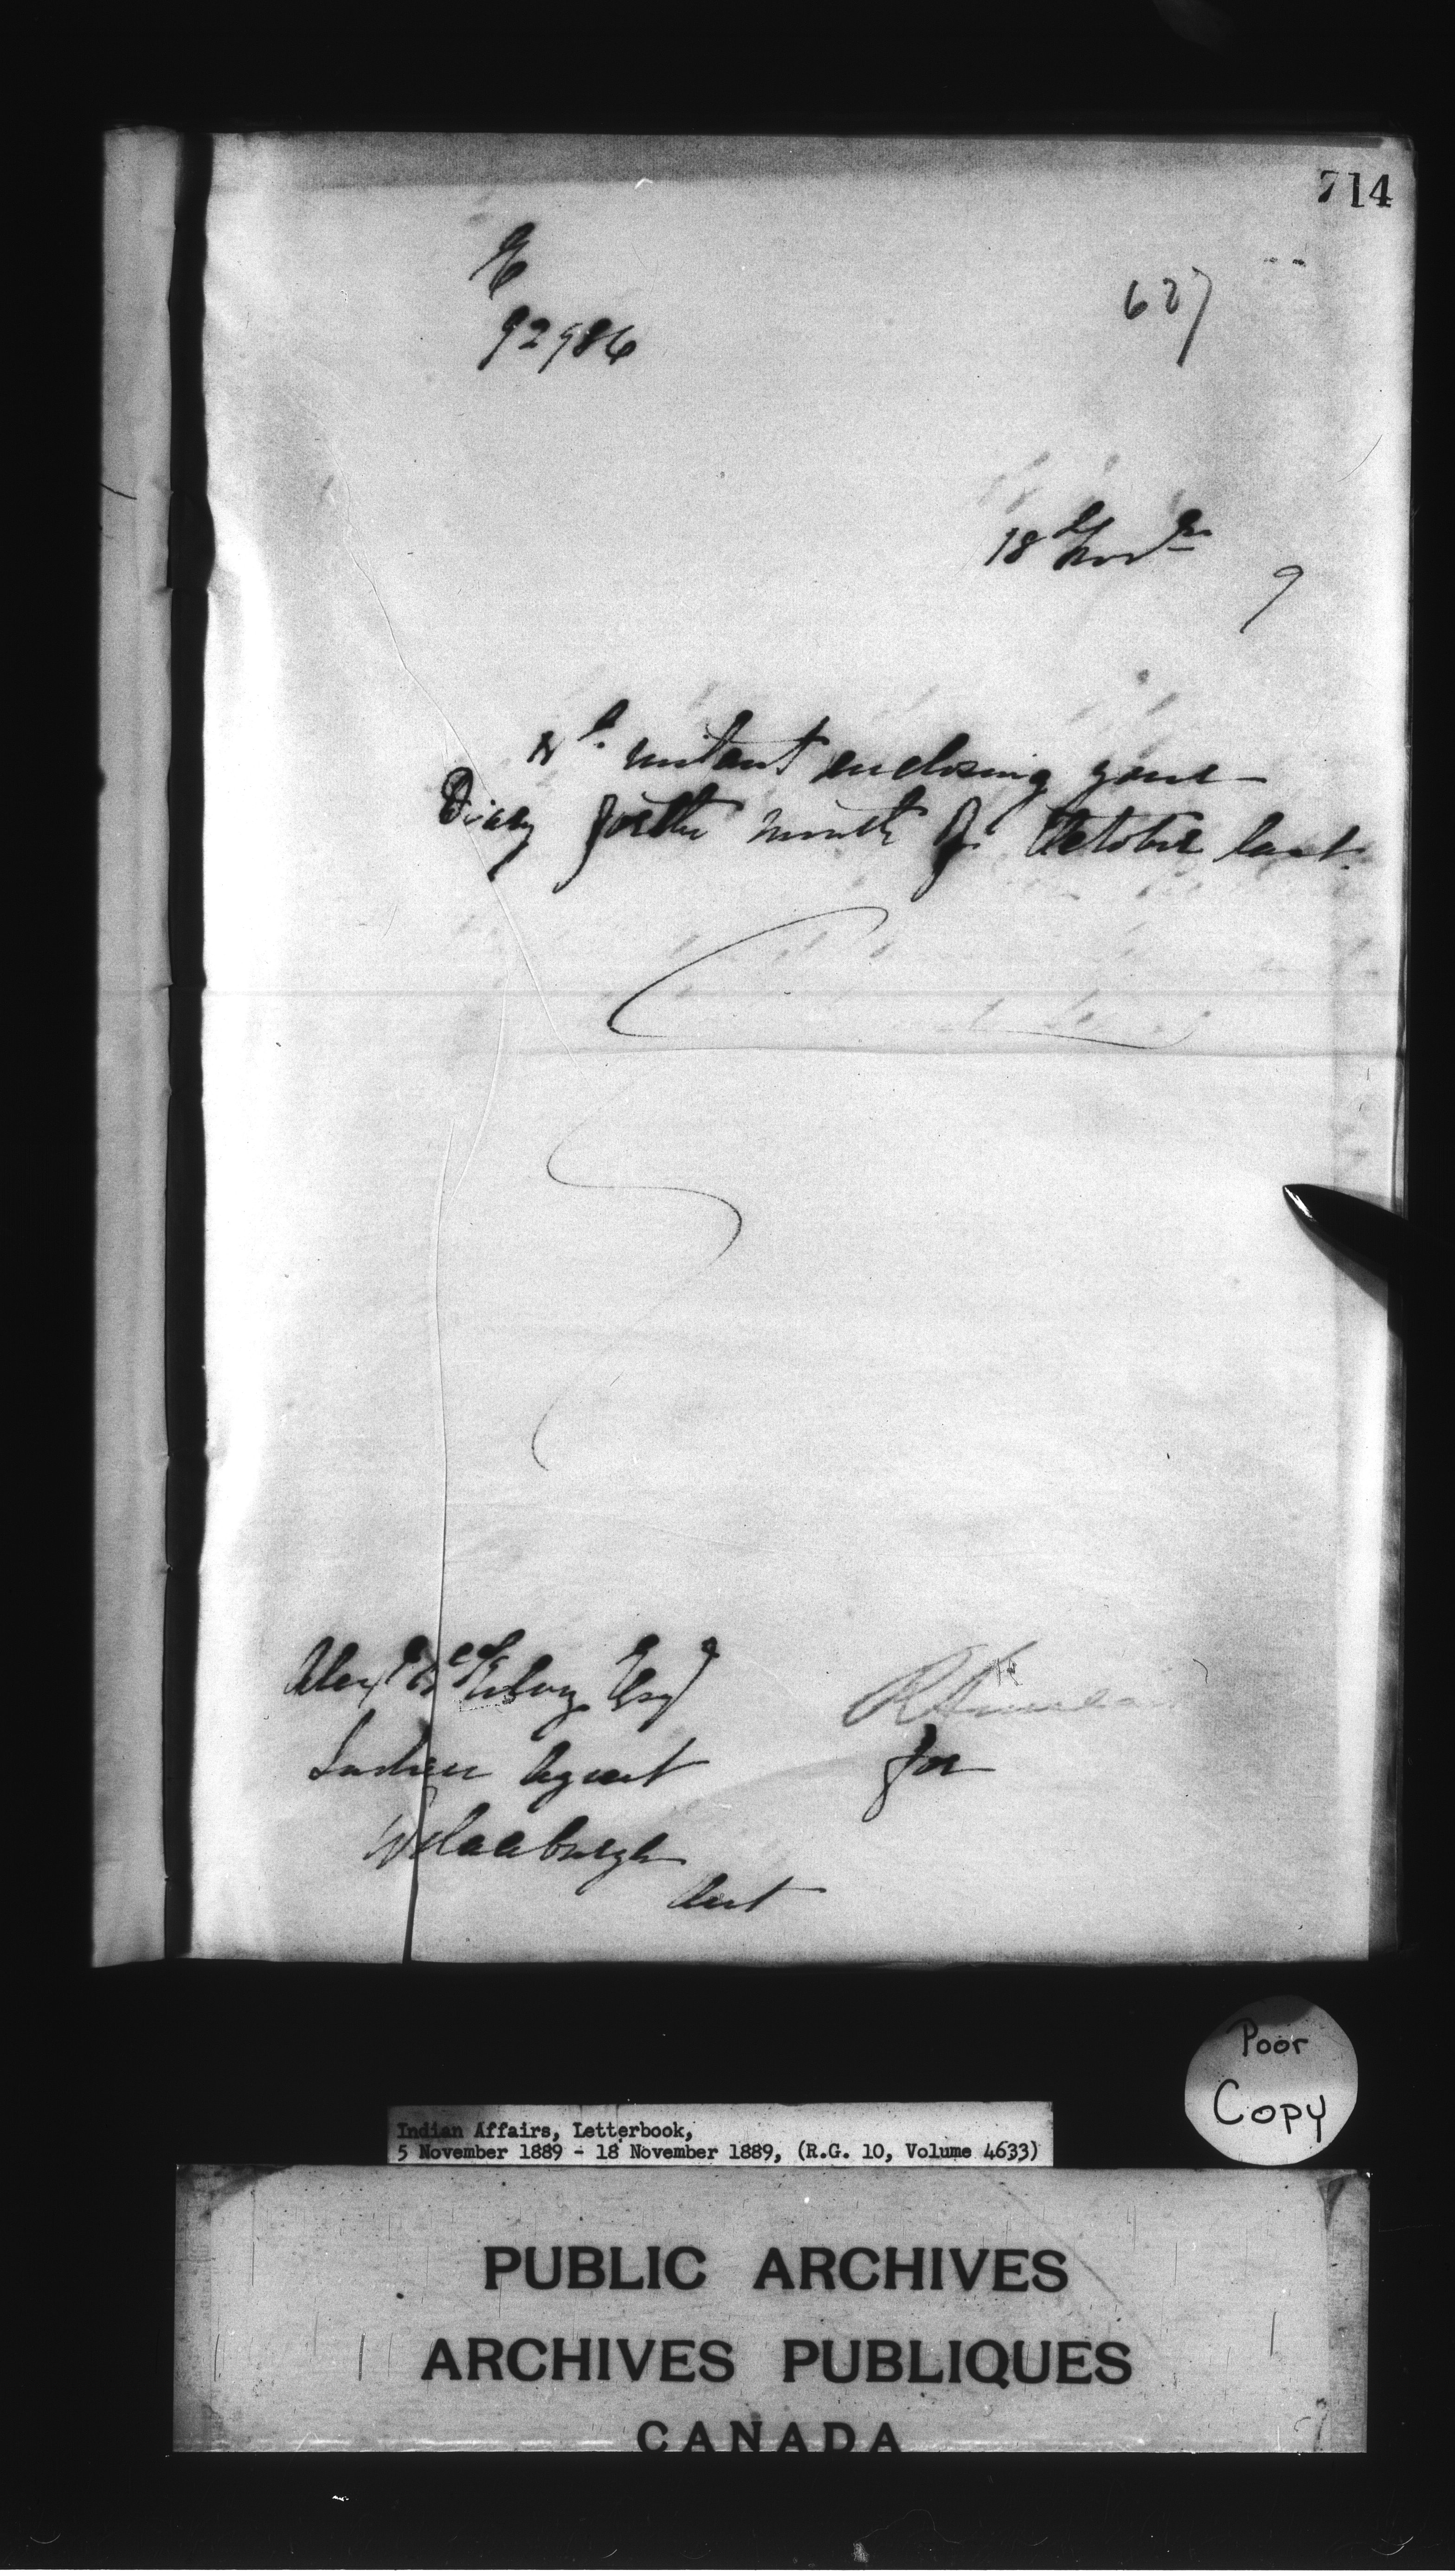 714
92986
627
18th Novr
9
instant enclosing your
Diary for the month of October last.
Alex McKelvey Esqr
Indian Agent
for
Wallaceburgh
Ont
Poor
Copy
Indian Affairs, Letterbook,
5 November 1889 - 18 November 1889, (R.G. 10, Volume 4633)
PUBLIC ARCHIVES
ARCHIVES PUBLIQUES
CANADA